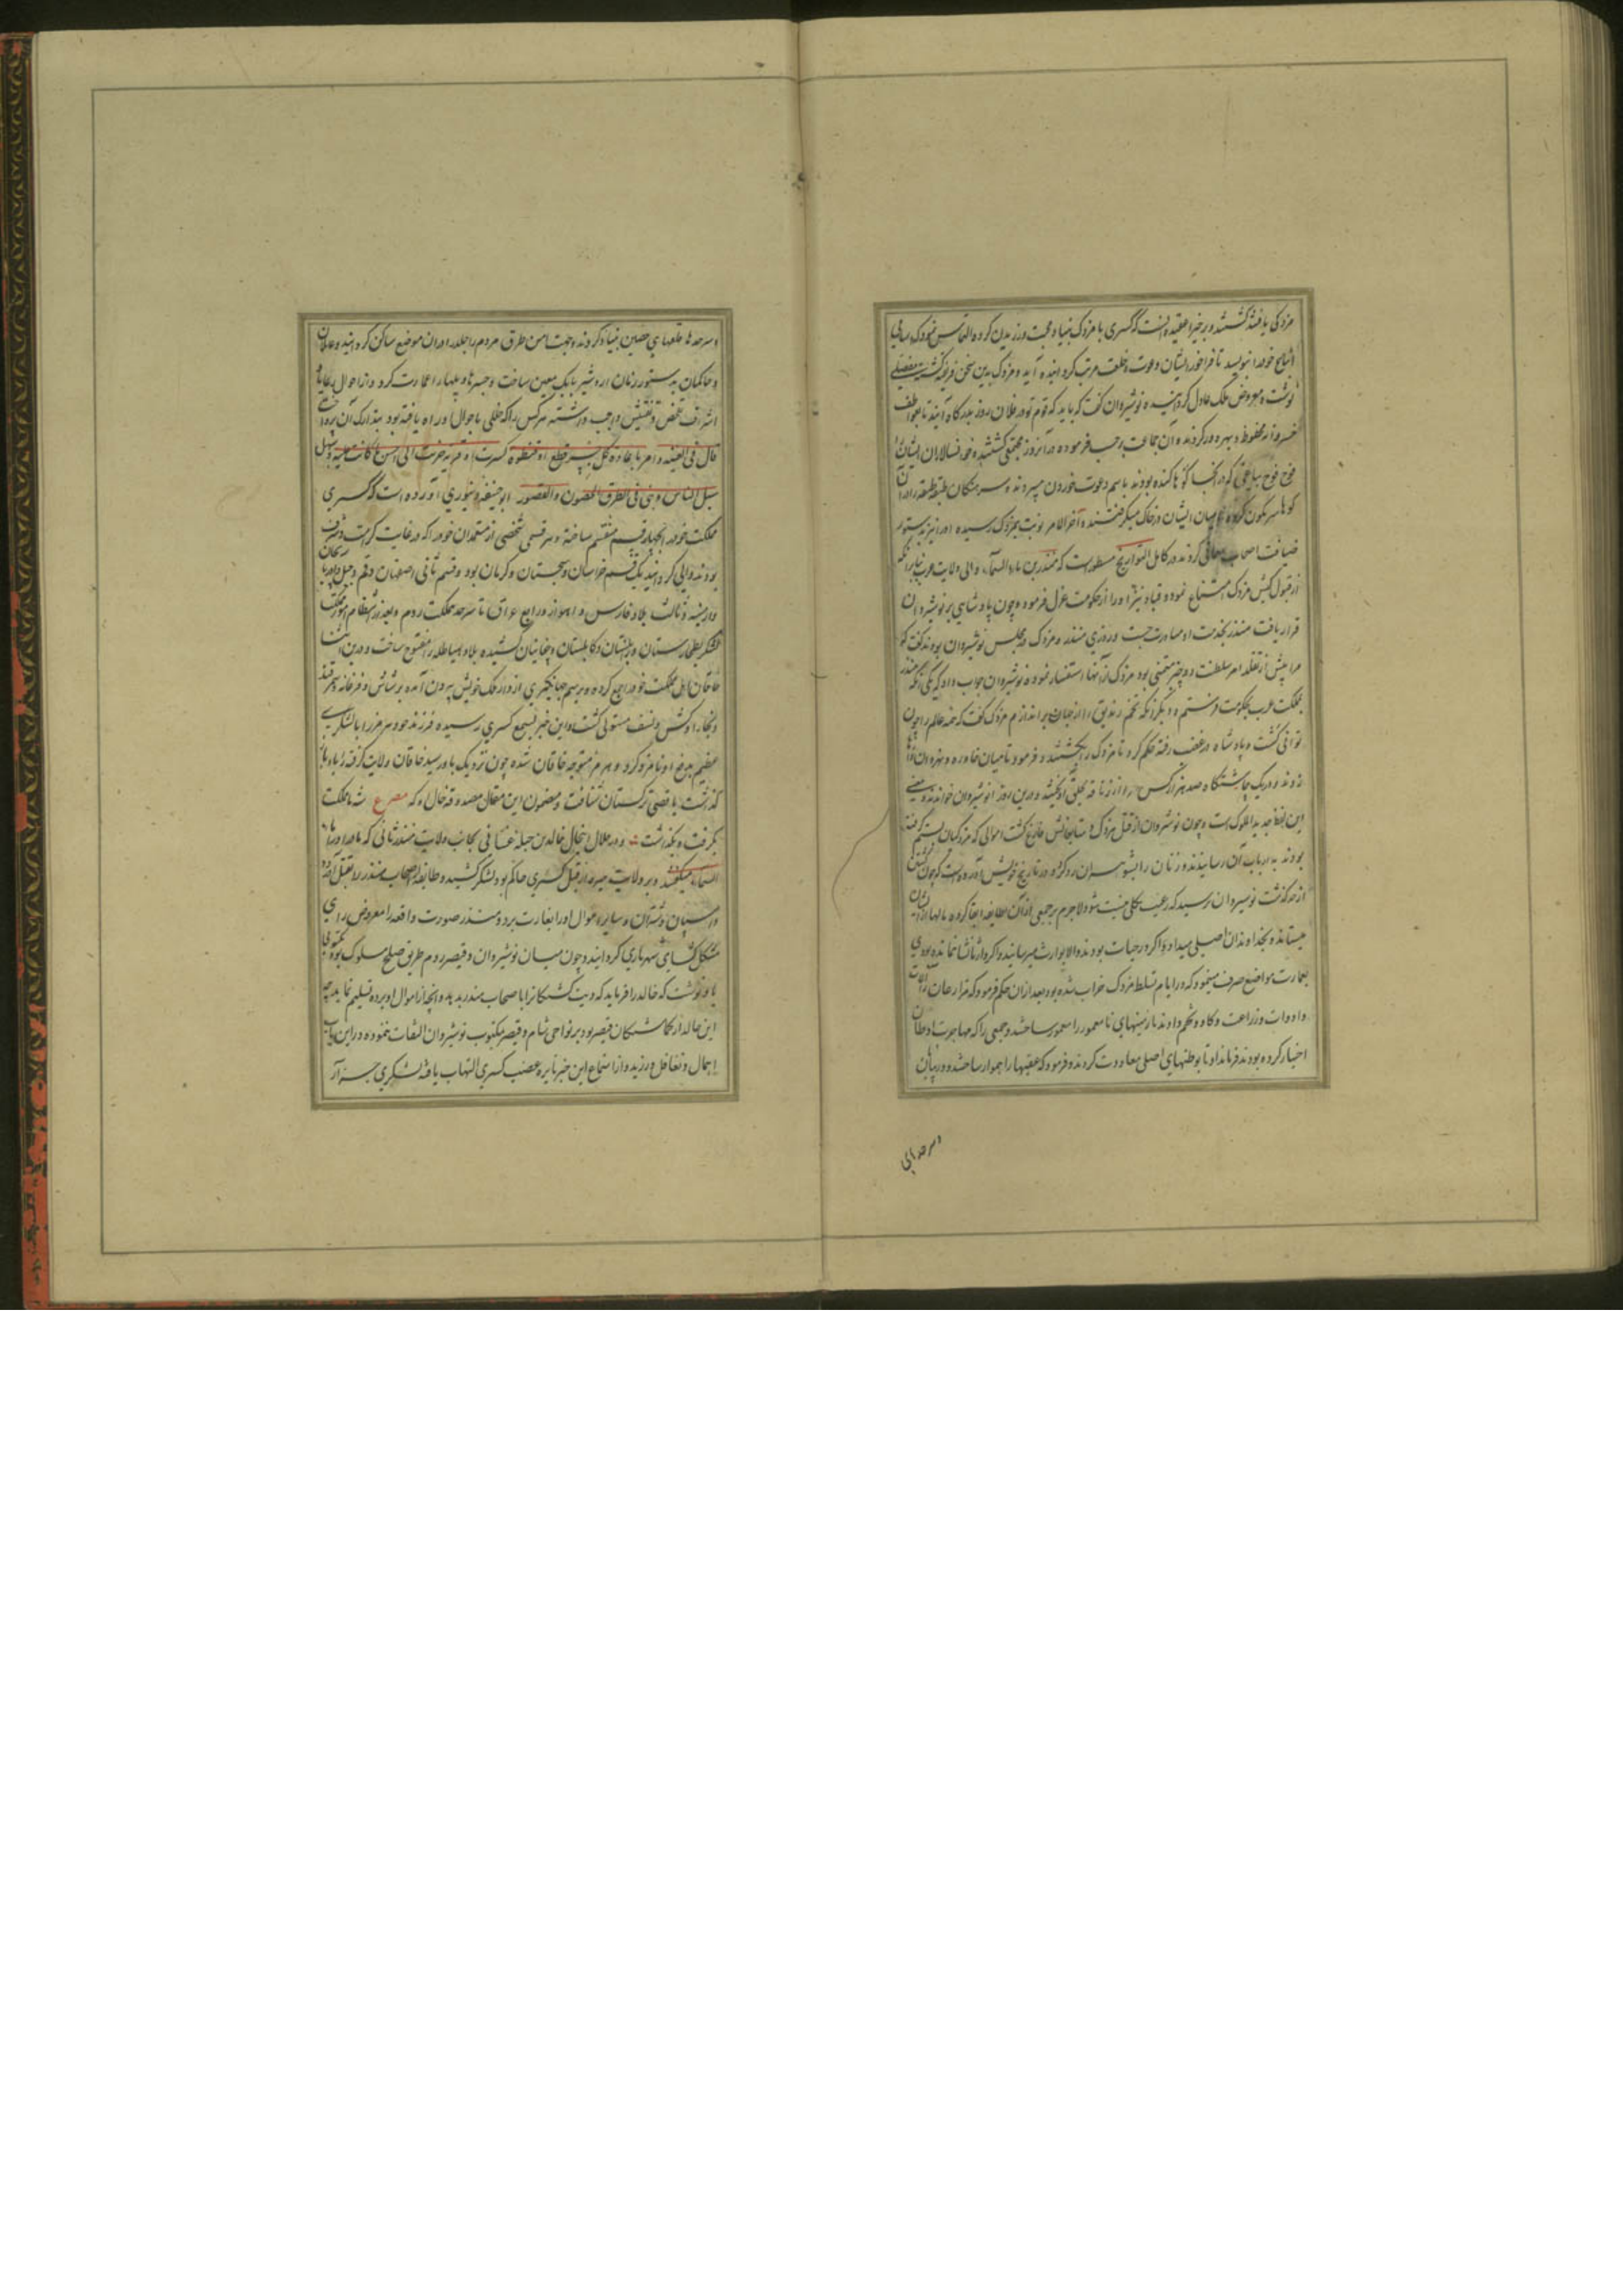 مزدکی یافتند کشتند و برخی را عقیده آنست که کسری با مزدک بنیاد محبت ورزیدن کرده التماس نمود که اسامی
اتباع خود را بنویسد تا فراخور ایشان دعوت و خلعت مرتب گردانیده آید و مزدک بدین سخن فریفته گشته مفصلی
نوشته معروض ملک عادل گردانیده نوشیروان گفت که باید که قوم تو در فلان روز بدرگاه آیند تا بعواطف
خسروانه محظوظ و بهره‌ور گردند و آن جماعت بموجب فرموده در آنروز مجتمع گشتند و خوانسالاران ایشان را
فوج فوج بباغی که در آنجا گوها کنده بودند باسم دعوت خوردن میبردند و سرهنگان طبقه طبقه را در آن
گوها سرنگون کرده تا میان ایشان در خاک میگرفتند و آخر الامر نوبت بمزدک رسیده او را نیز بدستور
ضیافت اصحاب معافی کردند و در کامل التواریخ مسطورست که منذر بن ماء السماء والی ولایت عرب بنابر آنکه
از قبول کیش مزدک امتناع نمود و قباد نیز او را از حکومت عزل فرمود و چون پادشاهی بر نوشیروان
قرار یافت منذر بخدمت او مبادرت جست و روزی منذر و مزدک در مجلس نوشیروان بودند گفت که
مرا پیش از تقلد امر سلطنت دو چیز متمنی بود مزدک از آنها استفسار نمود نوشیروان جواب داد که یکی آنکه منذر را
بمملکت عرب بحکومت فرستم و دیگر آنکه تخم زندیق را از جهان براندازم مزدک گفت که همه عالم را چون
توانی کشت و پادشاه در غضب رفته حکم کرد تا مزدک را بکشتند و فرمود تا میان خادره و نهروان دارها
زدند و در یک چاشتگاه صد هزار کس را از زنادقه بحلق آویختند و درین روز انوشیروان خواندند و معنی
این لفظ جدید الملوک است و چون نوشیروان از قتل مزدک و متابعانش فارغ گشت اموالی که مزدکیان بستم گرفته
بودند به ارباب آن رسانیدند و زنان را بشوهران رد کرد و در تاریخ خویش آورده است که چون قتل
از حد گذشت نوشیروان ترسید که رعیت بکلی نیست شود لاجرم بر جمعی از آن طایفه ابقا کرده مالها از ایشان
میستاند و بخداوندان اصلی میداد و اگر در حیات بودند و الا بوارث میرسانید و اگر وارثانشان نمانده بودی
بعمارت مواضع صرف مینمود که در ایام تسلط مزدک خراب شده بود بعد از آن حکم فرمود که مزارعان را آلات
و ادوات وزراعت و گاو و تخم دادند تا زمینهای نامعمور را معمور ساختند و جمعی را که مهاجرت اوطان
اختیار کرده بودند فرمان داد تا بوطنهای اصلی معاودت کردند و فرمود که عقبها را هموار ساختند و در میان
و سرحدهای
و سرحدها قلعهای حصین بنیاد کردند و جهت امن طرق مردم را جلد در آن موضع ساکن گردانید و عاملان
و حاکمان بدستور زمان اردشیر بابک معین ساخت و جسرها و پلها را عمارت کرد و از احوال رعایا
قال فی الغنیه و امر باعادة کل جسر قطع او قنطرة کسرت او قریة خربت الی احسن ما کانت علیه و سهل
سبل الناس و بنی فی الطرق الحصون و القصور ابو حنیفه دینوری آورده است که کسری
مملکت خود را بچهار قسم منقسم ساخته و هر قسمی شخصی از معتمدان خود را که در غایت
بودند والی گردانید یک قسم خراسان و سجستان و کرمان بود و قسم ثانی اصفهان و قم و جبل و آذربایجان
و ارمنیه و ثالث بلاد فارس و اهواز و رابع عراق تا سرحد مملکت روم و بعد از انتظام امور مملکت
لشکر بطخارستان و زابلستان و کابلستان و چغانیان کشیده بلاد هیاطله را مفتوح ساخت و درین اثنا
خاقان اهل مملکت خود را جمع کرده و برسم جهانگیری از دار ملک خویش بیرون آمده بر شاش و فرغانه و سمرقند
و بخارا و کش و نسف مستولی گشت و این خبر بسمع کسری رسیده فرزند خود هرمز را با لشکری
عظیم بدفع او نامزد کرد و هرمز متوجه خاقان شده چون نزدیک باو رسید خاقان ولایت گرفته را
گذاشت باقصی ترکستان شتافت و مضمون این مقال مصدوقه حال او که مصرع شه مملکت
بگرفت و بگذاشت و در خلال این حال خالد بن جبله غسانی بجانب ولایت منذر ثانی که
السماء میگفتند و بر ولایت حیره از قبل کسری حاکم بود لشکر کشید و طایفه اصحاب منذر را بقتل آورده
و اسپان و شتران و سایر اموال او را بغارت برد و منذر صورت واقعه را معروض رای
مشکل گشای شهریاری گردانید و چون میان نوشیروان و قیصر روم طریق صلح مسلوک بود مکتوبی
باو نوشت که خالد را فرماید که دیت کشتگان را باصحاب منذر بدهد و آنچه از اموال او برده تسلیم نماید چه
این خالد از گماشتگان قیصر بود بر نواحی شام و قیصر بمکتوب نوشیروان التفات ننموده در این باب
اهمال و تغافل ورزید و از استماع این خبر نایره غضب کسری التهاب یافته لشکری جرار